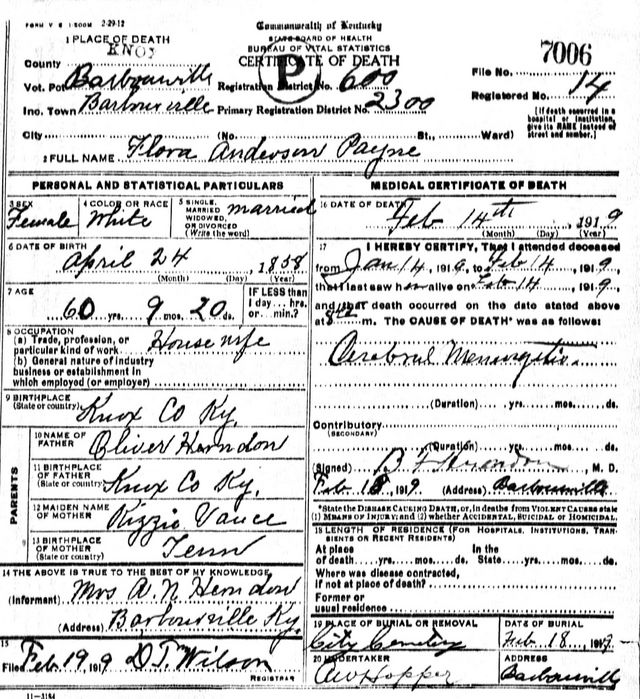 FORM V S 1 500M 2-29-12
Commonwealth of Kentucky
STATE BOARD OF HEALTH
BUREAU OF VITAL STATISTICS
CERTIFICATE OF DEATH
P
7006
1 PLACE OF DEATH
County KNOX
Vot. Pct Barbourville Registration District No. 600
File No. 14
Inc. Town Barbourville Primary Registration District No. 2300
Registered No.
[If death occurred in a hospital or institution, give its NAME instead of street and number.]
City (No. St., Ward)
2 FULL NAME Flora Anderson Payne
PERSONAL AND STATISTICAL PARTICULARS
3 SEX Female
4 COLOR OR RACE White
5 SINGLE, MARRIED WIDOWED, OR DIVORCED (Write the word) married
6 DATE OF BIRTH
April 24 1858
(Month) (Day) (Year)
7 AGE
60 yrs. 9 mos. 20 ds.
IF LESS than 1 day... hrs. or min.?
8 OCCUPATION
(a) Trade, profession, or particular kind of work House wife
(b) General nature of industry business or establishment in which employed (or employer)
9 BIRTHPLACE
(State or country) Knox Co Ky.
PARENTS
10 NAME OF FATHER Oliver Herndon
11 BIRTHPLACE OF FATHER (State or country) Knox Co Ky.
12 MAIDEN NAME OF MOTHER Vance
13 BIRTHPLACE OF MOTHER Tenn
14 THE ABOVE IS TRUE TO THE BEST OF MY KNOWLEDGE
(Informant) Mrs A. N Herndon
(Address) Barbourville Ky.
15
Filed Feb 19 1919 D.T. Wilson
REGISTRAR
11-3184
MEDICAL CERTIFICATE OF DEATH
16 DATE OF DEATH
Feb 14th, 1919
(Month) (Day) (Year)
17 I HEREBY CERTIFY, That I attended deceased
from Jan 14, 1919, to Feb 14, 1919,
that I last saw her alive on Feb 14, 1919,
and that death occurred on the date stated above
at m. The CAUSE OF DEATH* was as follows:
Cerebral Meningitis
(Duration) yrs. mos. ds.
Contributory
(SECONDARY)
(Duration) yrs. mos. ds.
(Signed) B F Herndon, M. D.
Feb 18, 1919 (Address) Barbourville
*State the DISEASE CAUSING DEATH, or, in deaths from VIOLENT CAUSES state (1) MEANS OF INJURY; and (2) whether ACCIDENTAL, SUICIDAL or HOMICIDAL.
18 LENGTH OF RESIDENCE (FOR HOSPITALS, INSTITUTIONS, TRANSIENTS OR RECENT RESIDENTS)
At place of death yrs. mos. ds. In the State yrs. mos. ds.
Where was disease contracted, if not at place of death?
Former or usual residence
19 PLACE OF BURIAL OR REMOVAL
City Cemetery
DATE OF BURIAL
Feb 18, 1919
20 UNDERTAKER
AW Hopper
ADDRESS
Barbourville